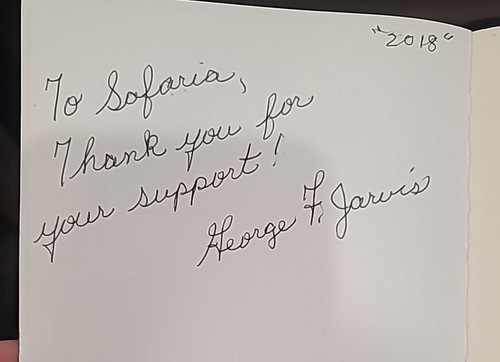 "2018"
To Safaria,
Thank you for
your support!
George F. Jarvis